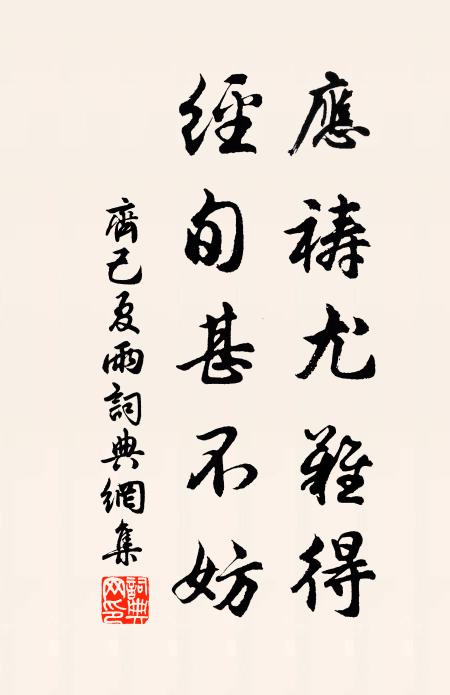 應禱尤難得
經旬甚不妨
齊己夏雨詞典網集
詞典網印